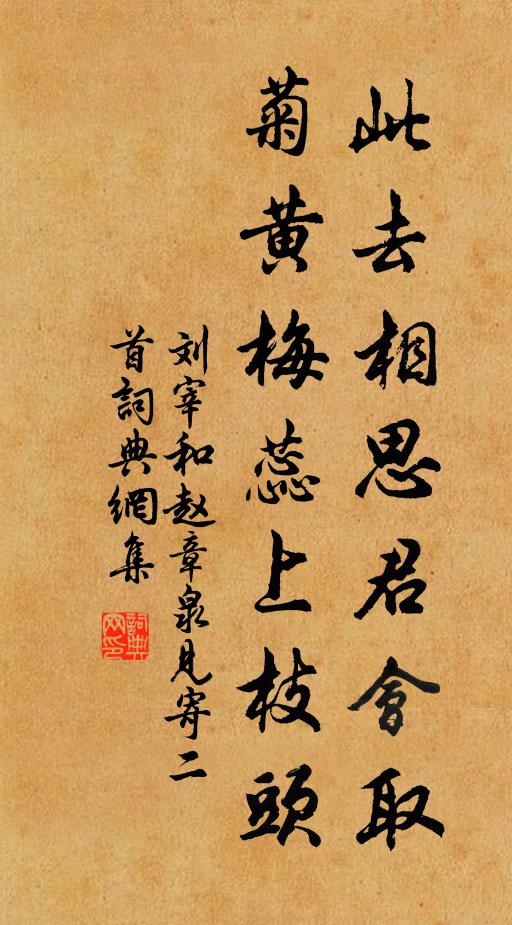 此去相思君會取
菊黄梅蕊上枝頭
刘宰和赵章泉见寄二
首詞典網集
詞典
网印